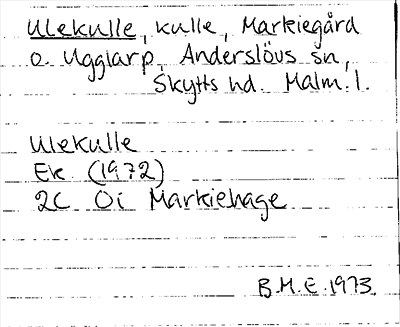 Ulekulle, kulle, Markiegård
o. Ugglarp, Anderslövs sn,
Skytts hd. Malm. l.
Ulekulle
Ek. (1972)
2C Oi Markiehage
B.M.E. 1973.